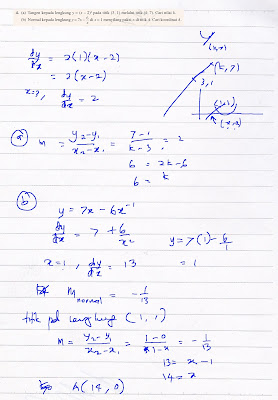 4. (a) Tangen kepada lengkung y = (x − 2)² pada titik (3, 1) melalui titik (k, 7). Cari nilai k.
(b) Normal kepada lengkung y = 7x − 6/x di x = 1 menyilang paksi-x di titik A. Cari koordinat A.
dy/dx = 2(1)(x−2)
= 2(x−2)
x=3, dy/dx = 2
(k, 7)
3, 1
(a) m = y₂−y₁/x₂−x₁ = 7−1/k−3 = 2
6 = 2k−6
6 = k
(b) y = 7x − 6x⁻¹
dy/dx = 7 + 6/x²
y = 7(1) − 6/1
= 1
x=1, dy/dx = 13
M normal = −1/13
titik pd lengkung (1, 1)
M = y₂−y₁/x₂−x₁ = 1−0/1−x = −1/13
13 = x − 1
14 = x
A(14, 0)